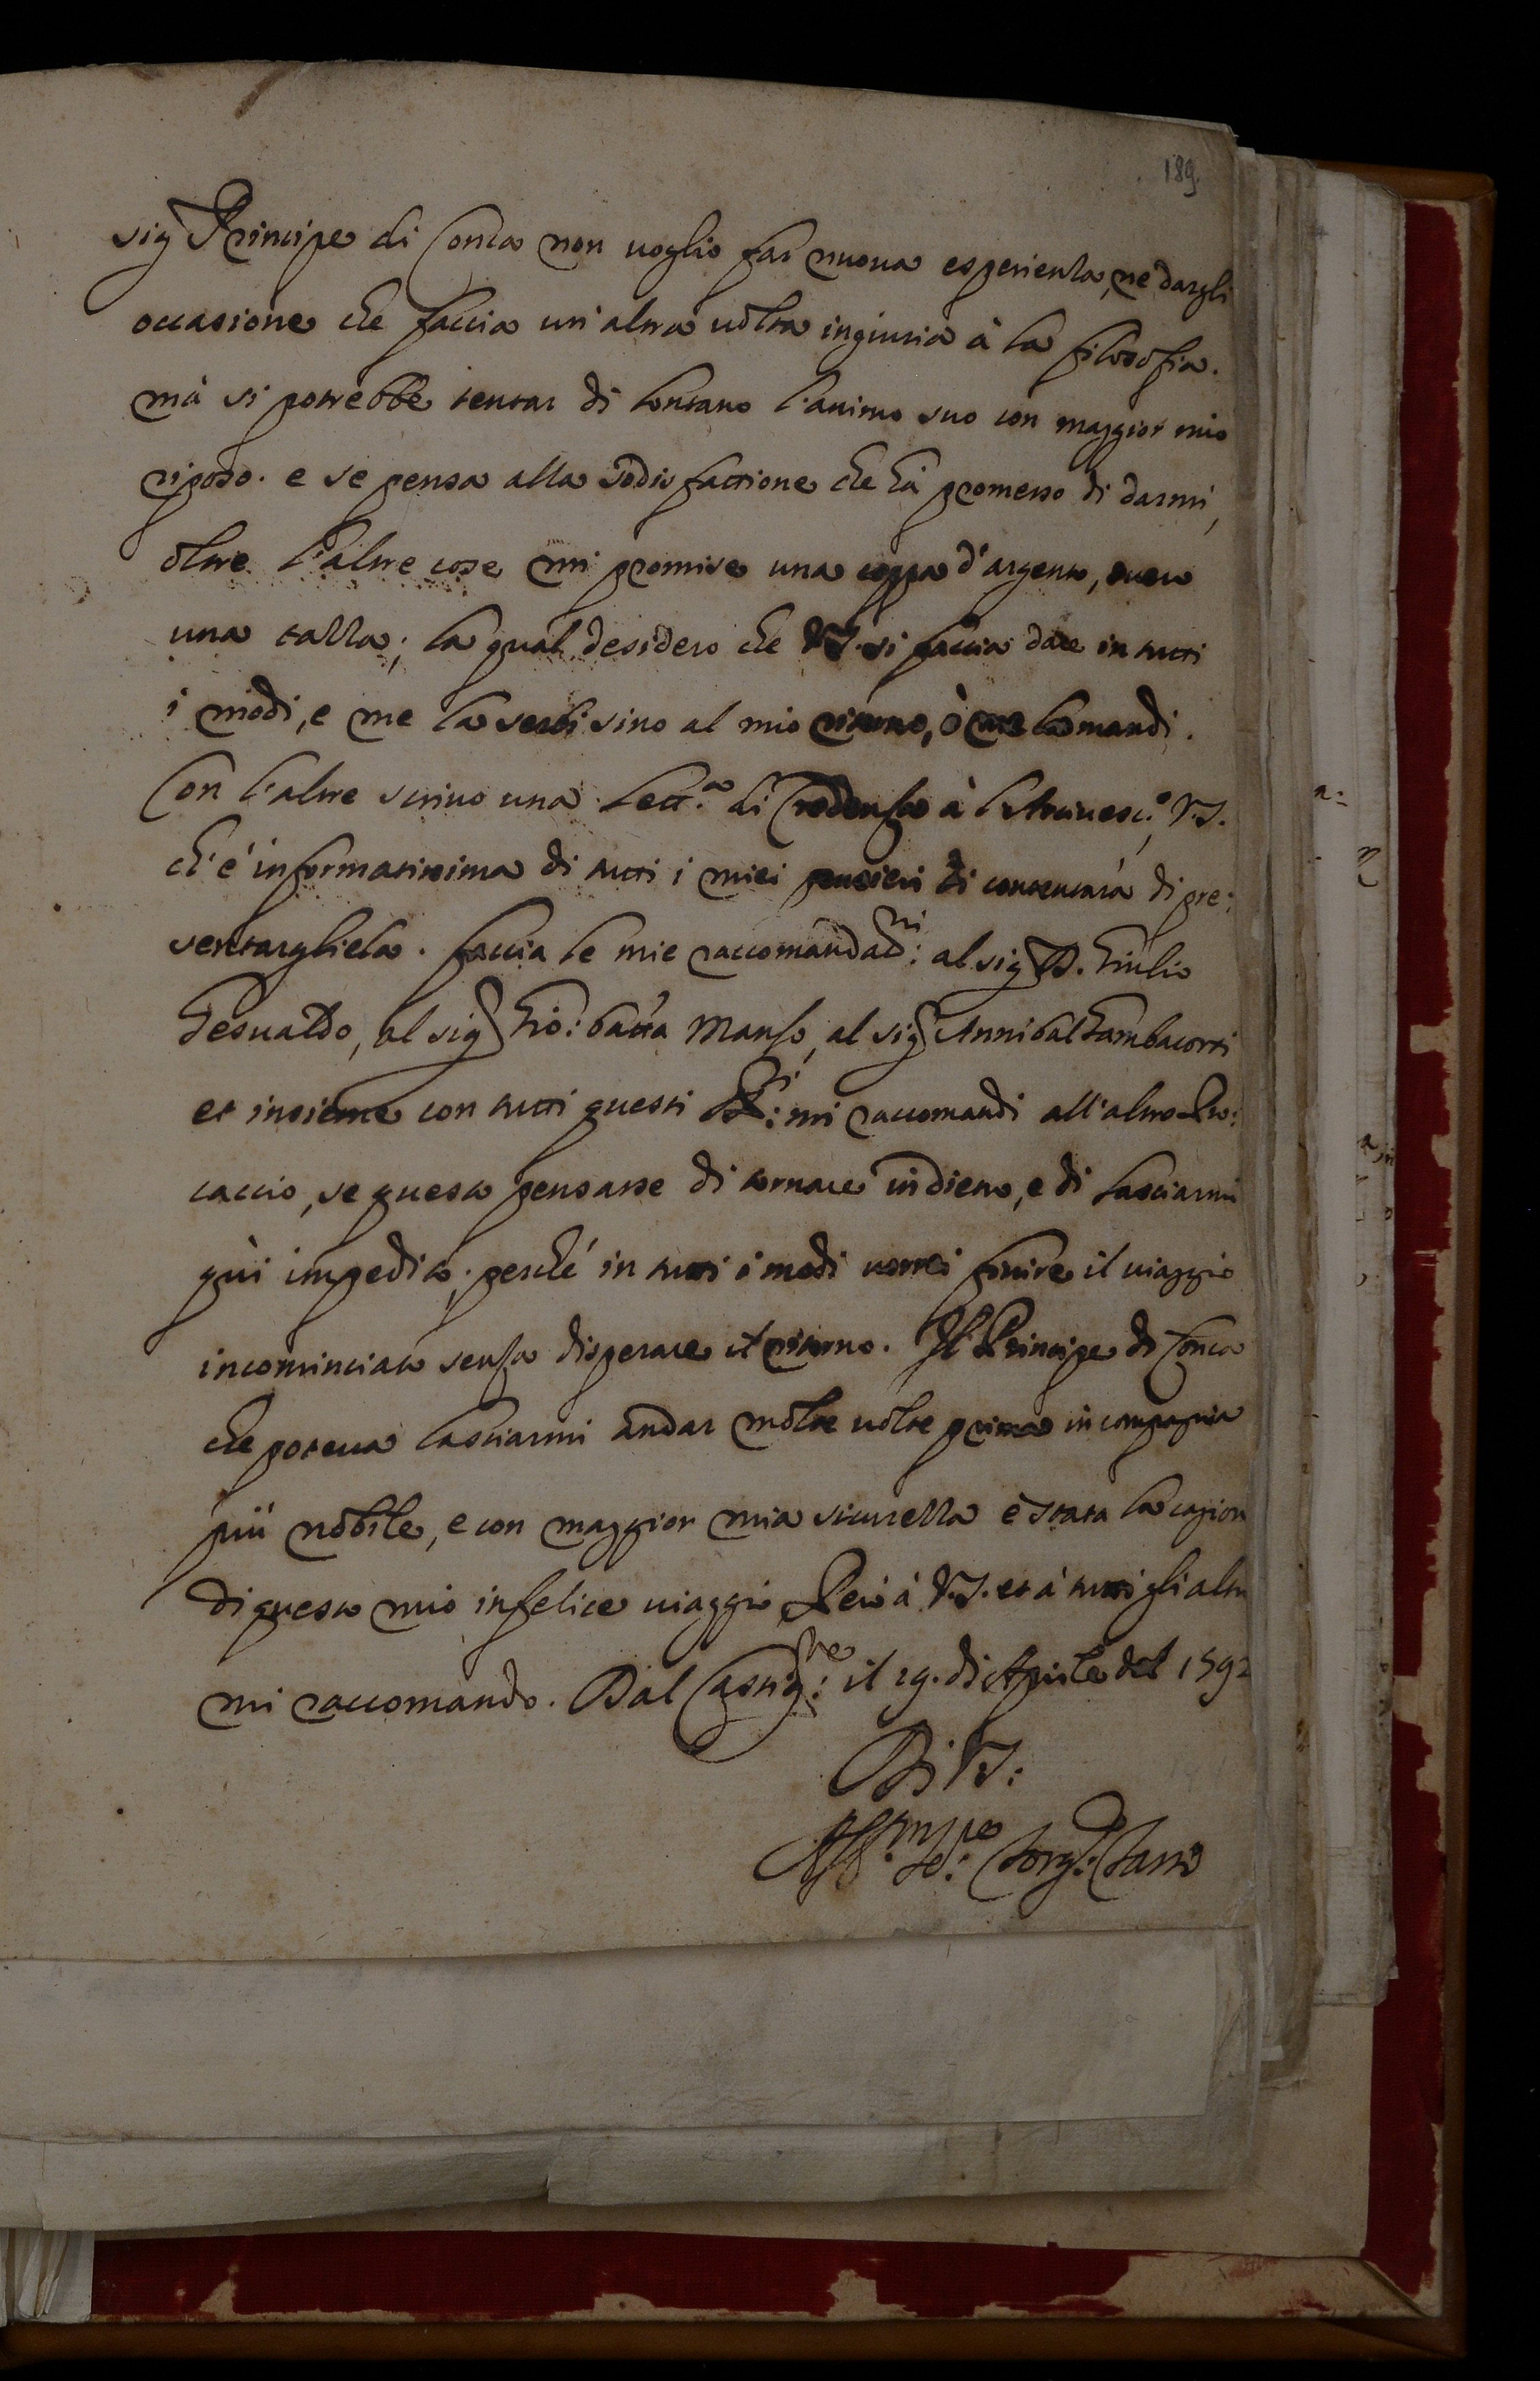 189.
sig.r Principe di Conca non voglio far nuova esperienza, ne dargli
occasione che faccia un'altra volta ingiuria à la filosofia.
mà si potrebbe tentar di lontano l'animo suo con maggior mio
riposo. e se pensa alla sodisfattione che hà promesso di darmi,
oltre l'altre cose mi promise una coppa d'argento, overo
una tazza; la qual desidero che V.S. si faccia dare in tutti
i modi, e me la serbi sino al mio ritorno, ò me la mandi.
Con l'altre scrivo una lett.a di credenza à l'Arcivesc.o, V.S.
ch'è informatissima di tutti i miei pensieri si contentarà di pre:
sentargliela. faccia le mie raccomandat.ni: al sig.r D. Giulio
Gesualdo, al sig.r Gio: batta Manso, al sig.r Annibal Gambacorti
et insieme con tutti questi SS.ri: mi raccomandi all'altro Pro:
caccio, se questo pensasse di tornare indietro, e di lasciarmi
quì impedito; perché in tutti i modi vorrei finire il viaggio
incominciato senza disperare il ritorno. Il Principe di Conca
che poteva lasciarmi andar molte volte prima in compagnia
più nobile, e con maggior mia sicurezza è stata la cagion
di questo mio infelice viaggio. Però à V.S. et à tutti gli altri
mi raccomando. Dal il 29. di Aprile del 1592
Di V.S:
Aff.mo Se.re: Torq: Tasso